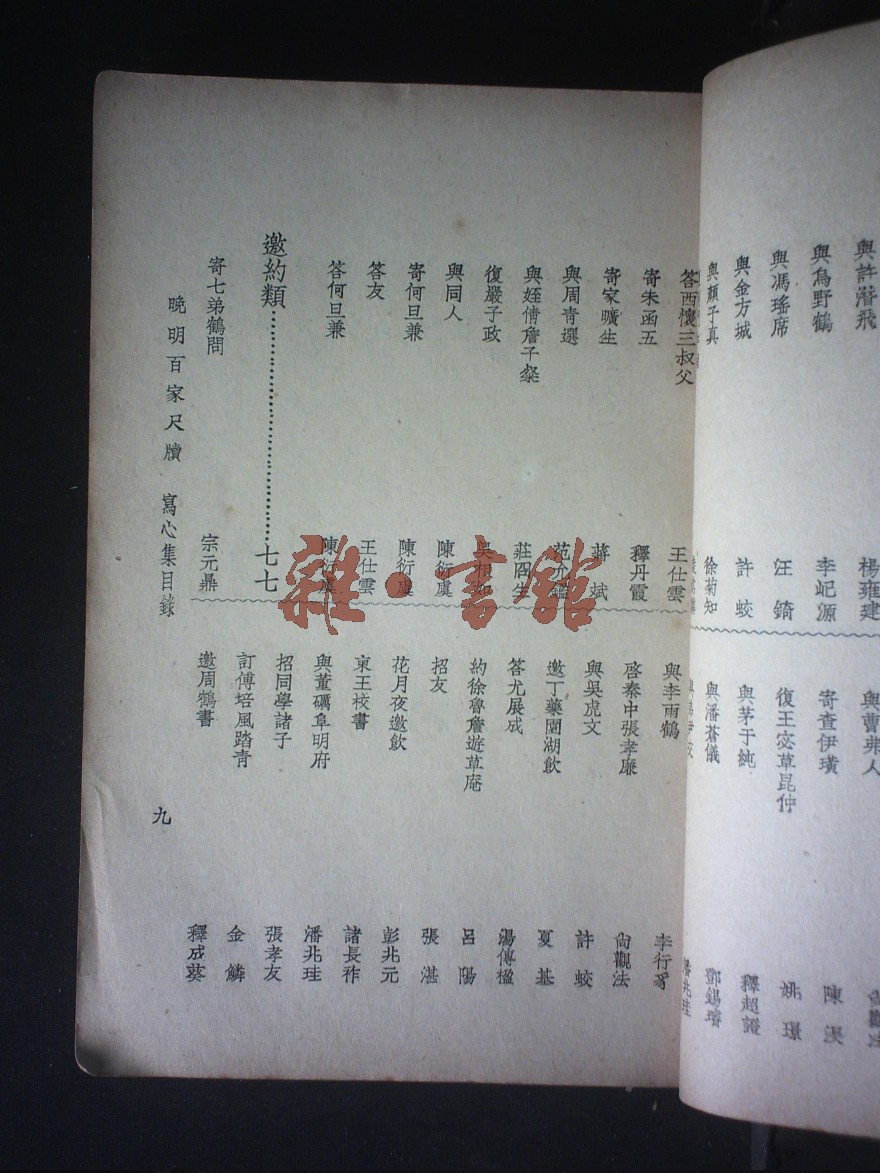 與許潛飛 楊雍建
與烏野鶴 李屺源
與馮瑤席 汪錡
與金方城 許蛟
與顏子真 徐菊知
與曹弗人
寄查伊璜 陳淏
復王宓草昆仲 姚璟
與茅于純 釋超證
與潘蒼儀 鄧錫璿
潘兆珪
答西懷三叔父 王仕雲
寄朱函五 釋丹霞
寄家曠生 蔣斌
與周青選 范介鑑
與姪倩詹子粲 莊冏生
復嚴子政 吳相如
與同人 陳衍虞
寄何旦兼 陳衍虞
答友 王仕雲
答何旦兼 陳衍虞
邀約類 七七
寄七弟鶴問 宗元鼎
與李雨鶴 李行
啓秦中張孝廉 尙觀法
與吳虎文 許蛟
邀丁藥園湖飲 夏基
答尤展成 湯傳楹
約徐魯詹遊草庵 呂陽
招友 張湛
花月夜邀飲 彭兆元
柬王校書 諸長祚
與董礪阜明府 潘兆珪
招同學諸子 張孝友
訂傅培風踏青 金鱗
邀周鶴書 釋成葵
晚明百家尺牘 寫心集目錄
九
雜·書館